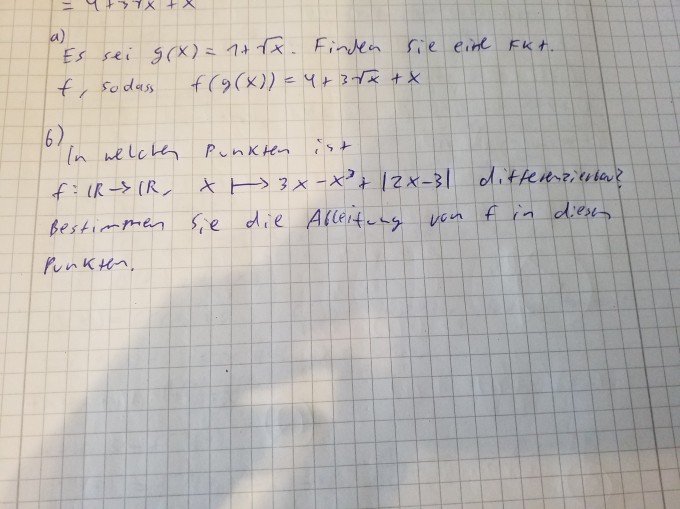 = 4+3√x + x
a)
Es sei g(x) = 1+√x. Finden Sie eine Fkt.
f, sodass f(g(x)) = 4+3√x + x
b)
In welchen Punkten ist
f: ℝ→ℝ, x ↦ 3x-x³+|2x-3| differenzierbar?
Bestimmen Sie die Ableitung von f in diesen
Punkten.